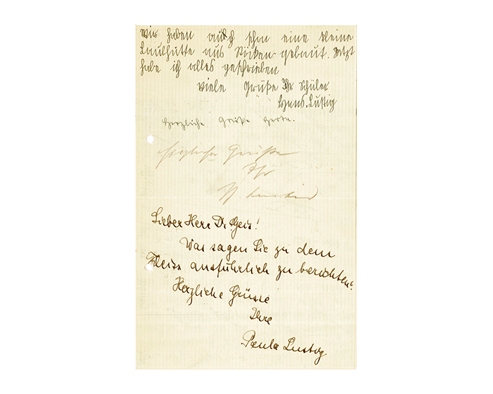 Wir haben auch schon eine kleine
Laubhütte aus Stöcken gebaut. Jetzt
habe ich alles geschrieben
Viele Grüße Ihr Schüler
Hans Lustig
Herzliche Grüße
Herzliche Grüße
Ihr
Lieber Herr Dr
Was sagen Sie zu dem
ausführlich zu berichten?
Herzliche Grüsse
Ihre
Paula Lustig